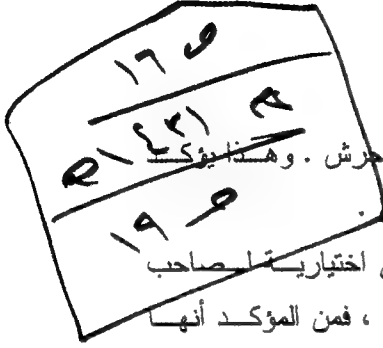 ص ١٦
١٤٣١ هـ
ص ١٩
حرش . وهذا يؤكد
.
اختيارية لصاحب
، فمن المؤكد أنها